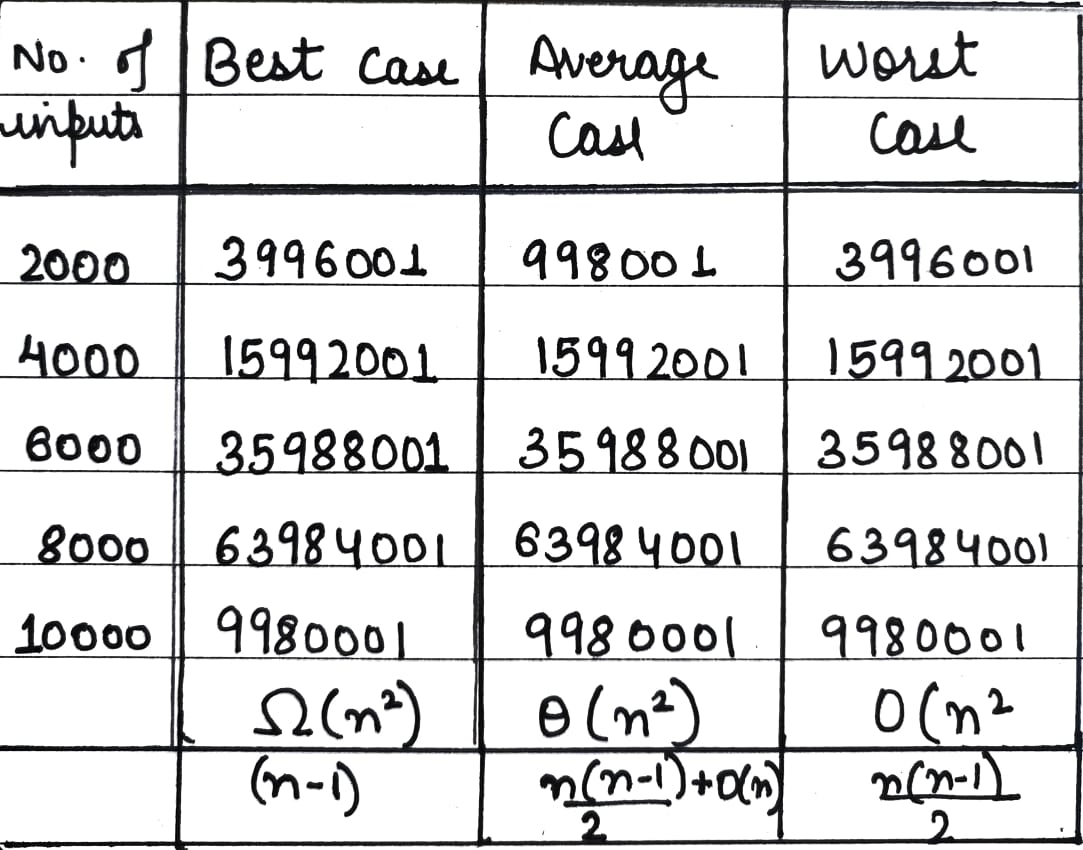 No. of Best Case Average Worst
inputs Case Case
2000 3996001 998001 3996001
4000 15992001 15992001 15992001
6000 35988001 35988001 35988001
8000 63984001 63984001 63984001
10000 9980001 9980001 9980001
Ω(n²) θ(n²) O(n²
(n-1) n(n-1)+O(n) n(n-1)
2 2